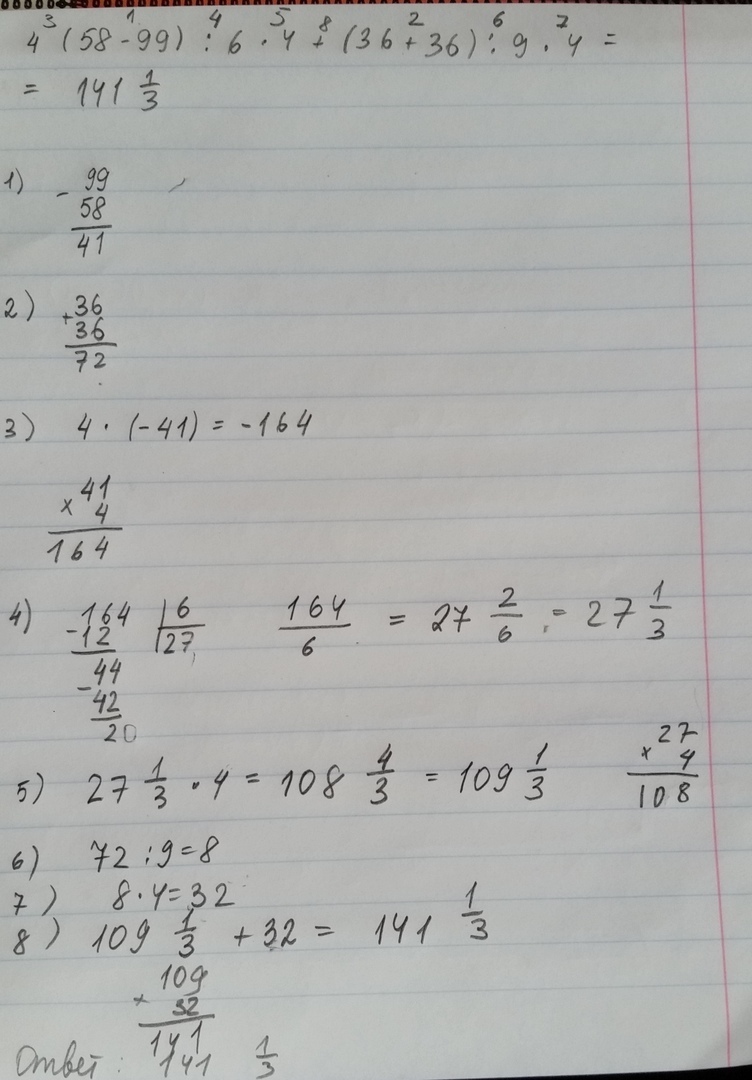 4 (58 - 99) : 6 · 4 + (36 + 36) : 9 · 4 =
3 1 4 5 8 2 6 7
= 141 1/3
1) - 99
58
41
2) + 36
36
72
3) 4 · (-41) = -164
× 41
4
164
4) - 164 | 6
12 | 27
- 44
42
20
164/6 = 27 2/6 = 27 1/3
5) 27 1/3 · 4 = 108 4/3 = 109 1/3
× 27
4
108
6) 72 : 9 = 8
7) 8 · 4 = 32
8) 109 1/3 + 32 = 141 1/3
+ 109
32
141
Ответ: 141 1/3